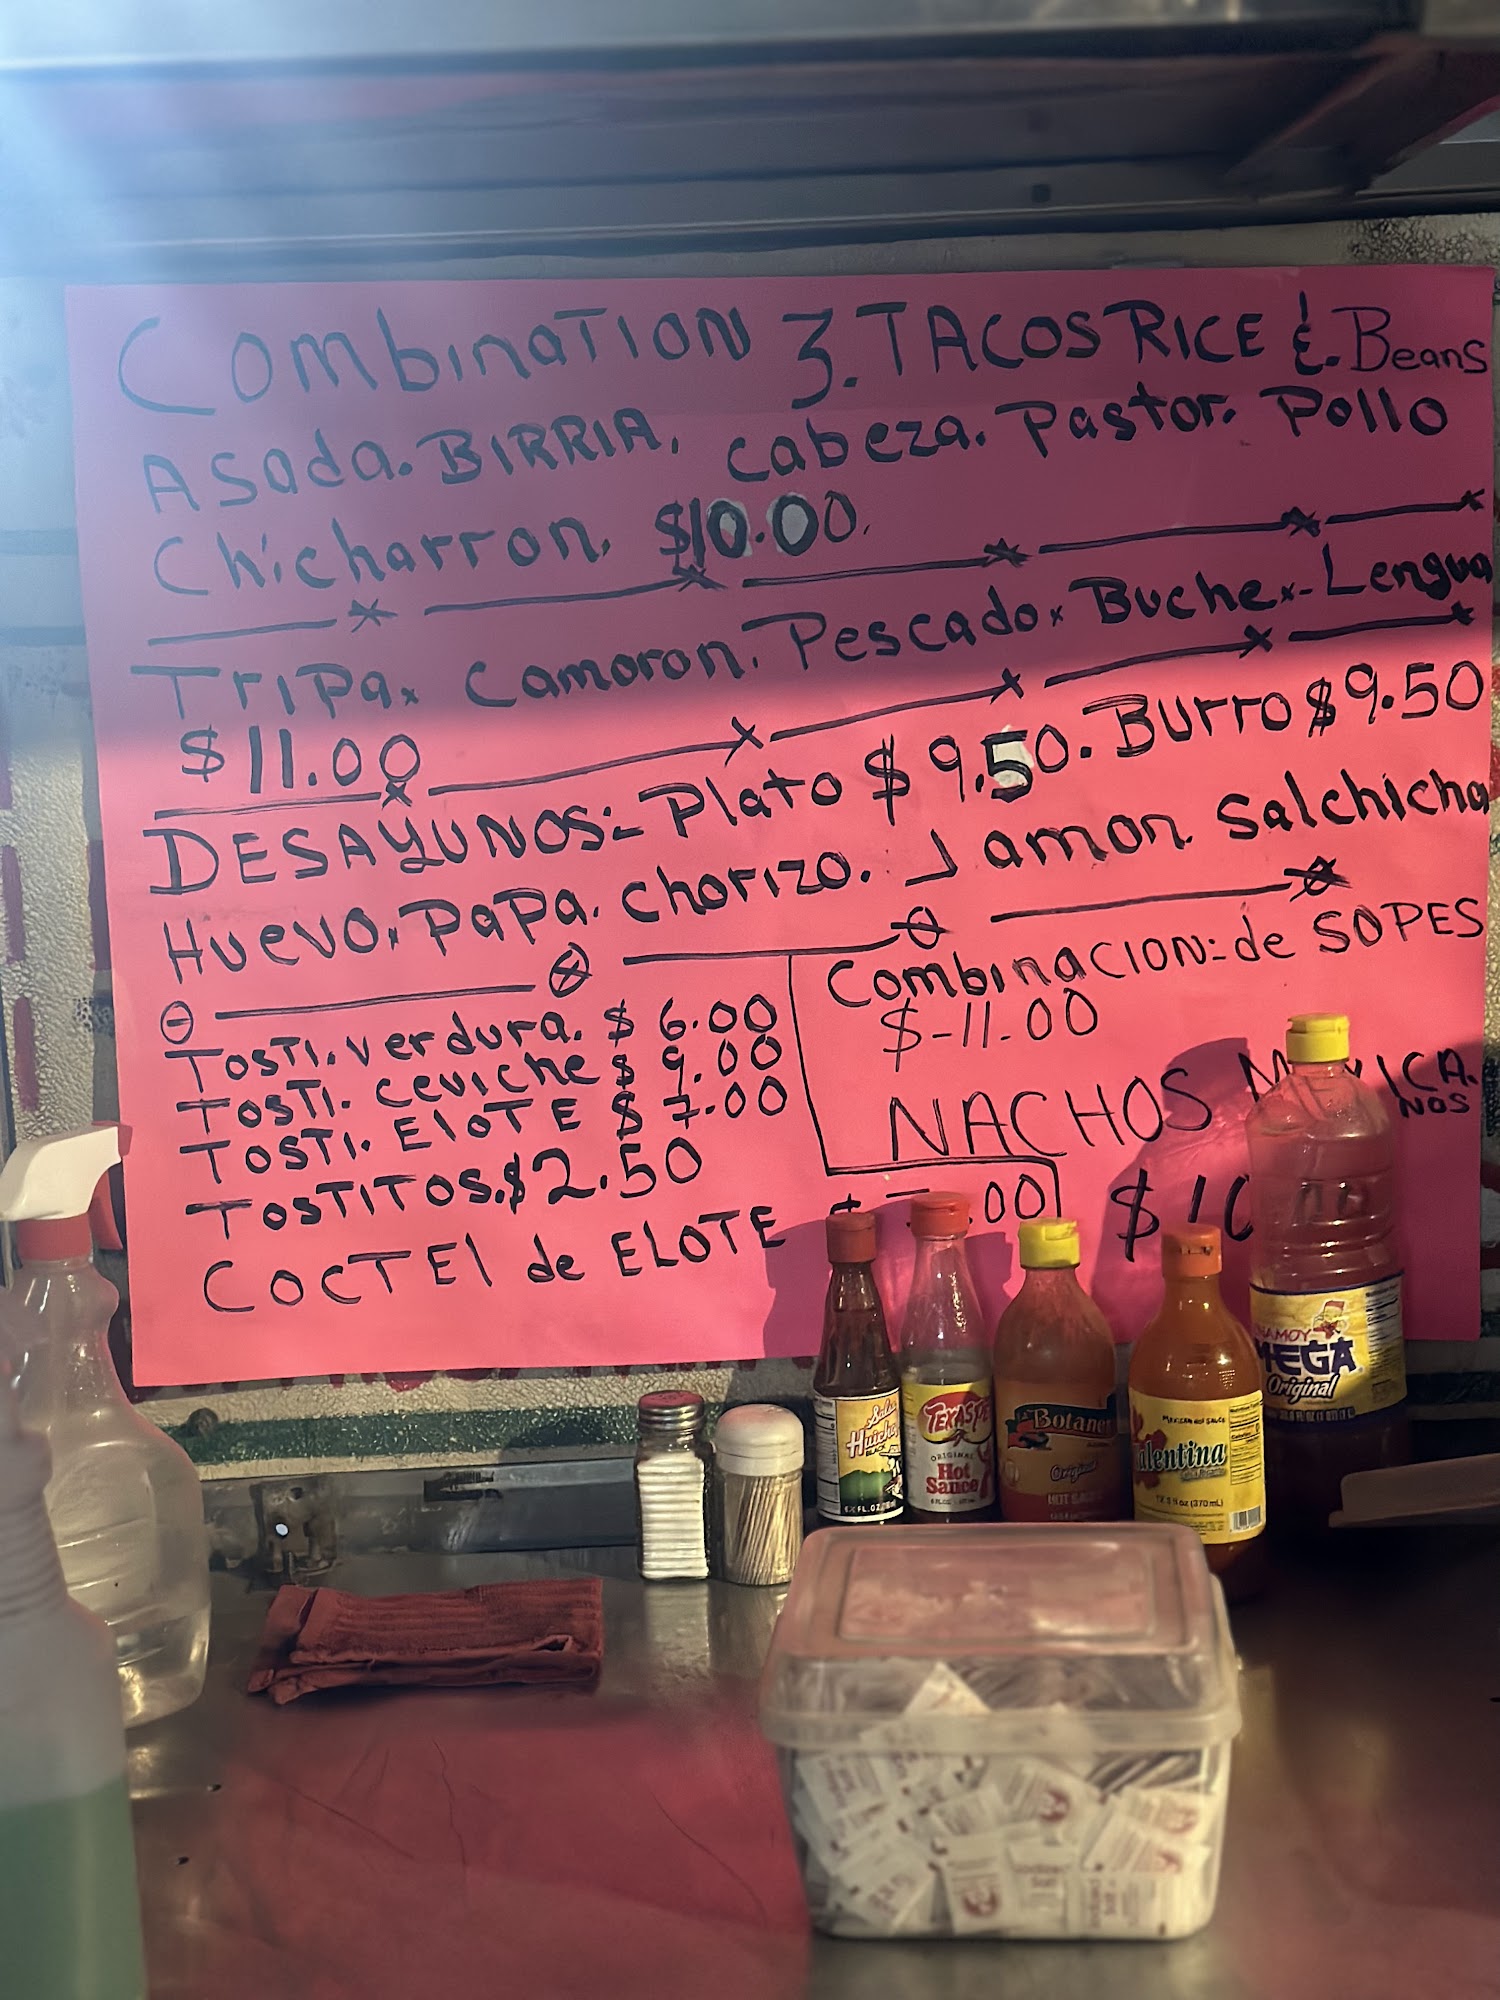 Combination 3. TACOS RICE &. Beans
Asada. BIRRIA. cabeza. Pastor. Pollo
Chicharron. $10.00.
Tripa. Camoron. Pescado. Buche. - Lengua
$11.00
DESAYUNOS:- Plato $9.50. Burro $9.50
Huevo. Papa. chorizo. Jamon. Salchicha
Tosti. verdura. $6.00
Tosti. ceviche $9.00
Tosti. ElOTE $7.00
TostiTOS. $2.50
COCTEl de ELOTE .00
Combinacion:- de SOPES
$-11.00
NACHOS MEXICA.
NOS
$10
Salsa
Huichol
TEXAS PETE
ORIGINAL
Hot
Sauce
Botanera
Original
HOT SAUCE
MEXICAN HOT SAUCE
Valentina
12.5 fl oz (370 mL)
CHAMOY
MEGA
Original